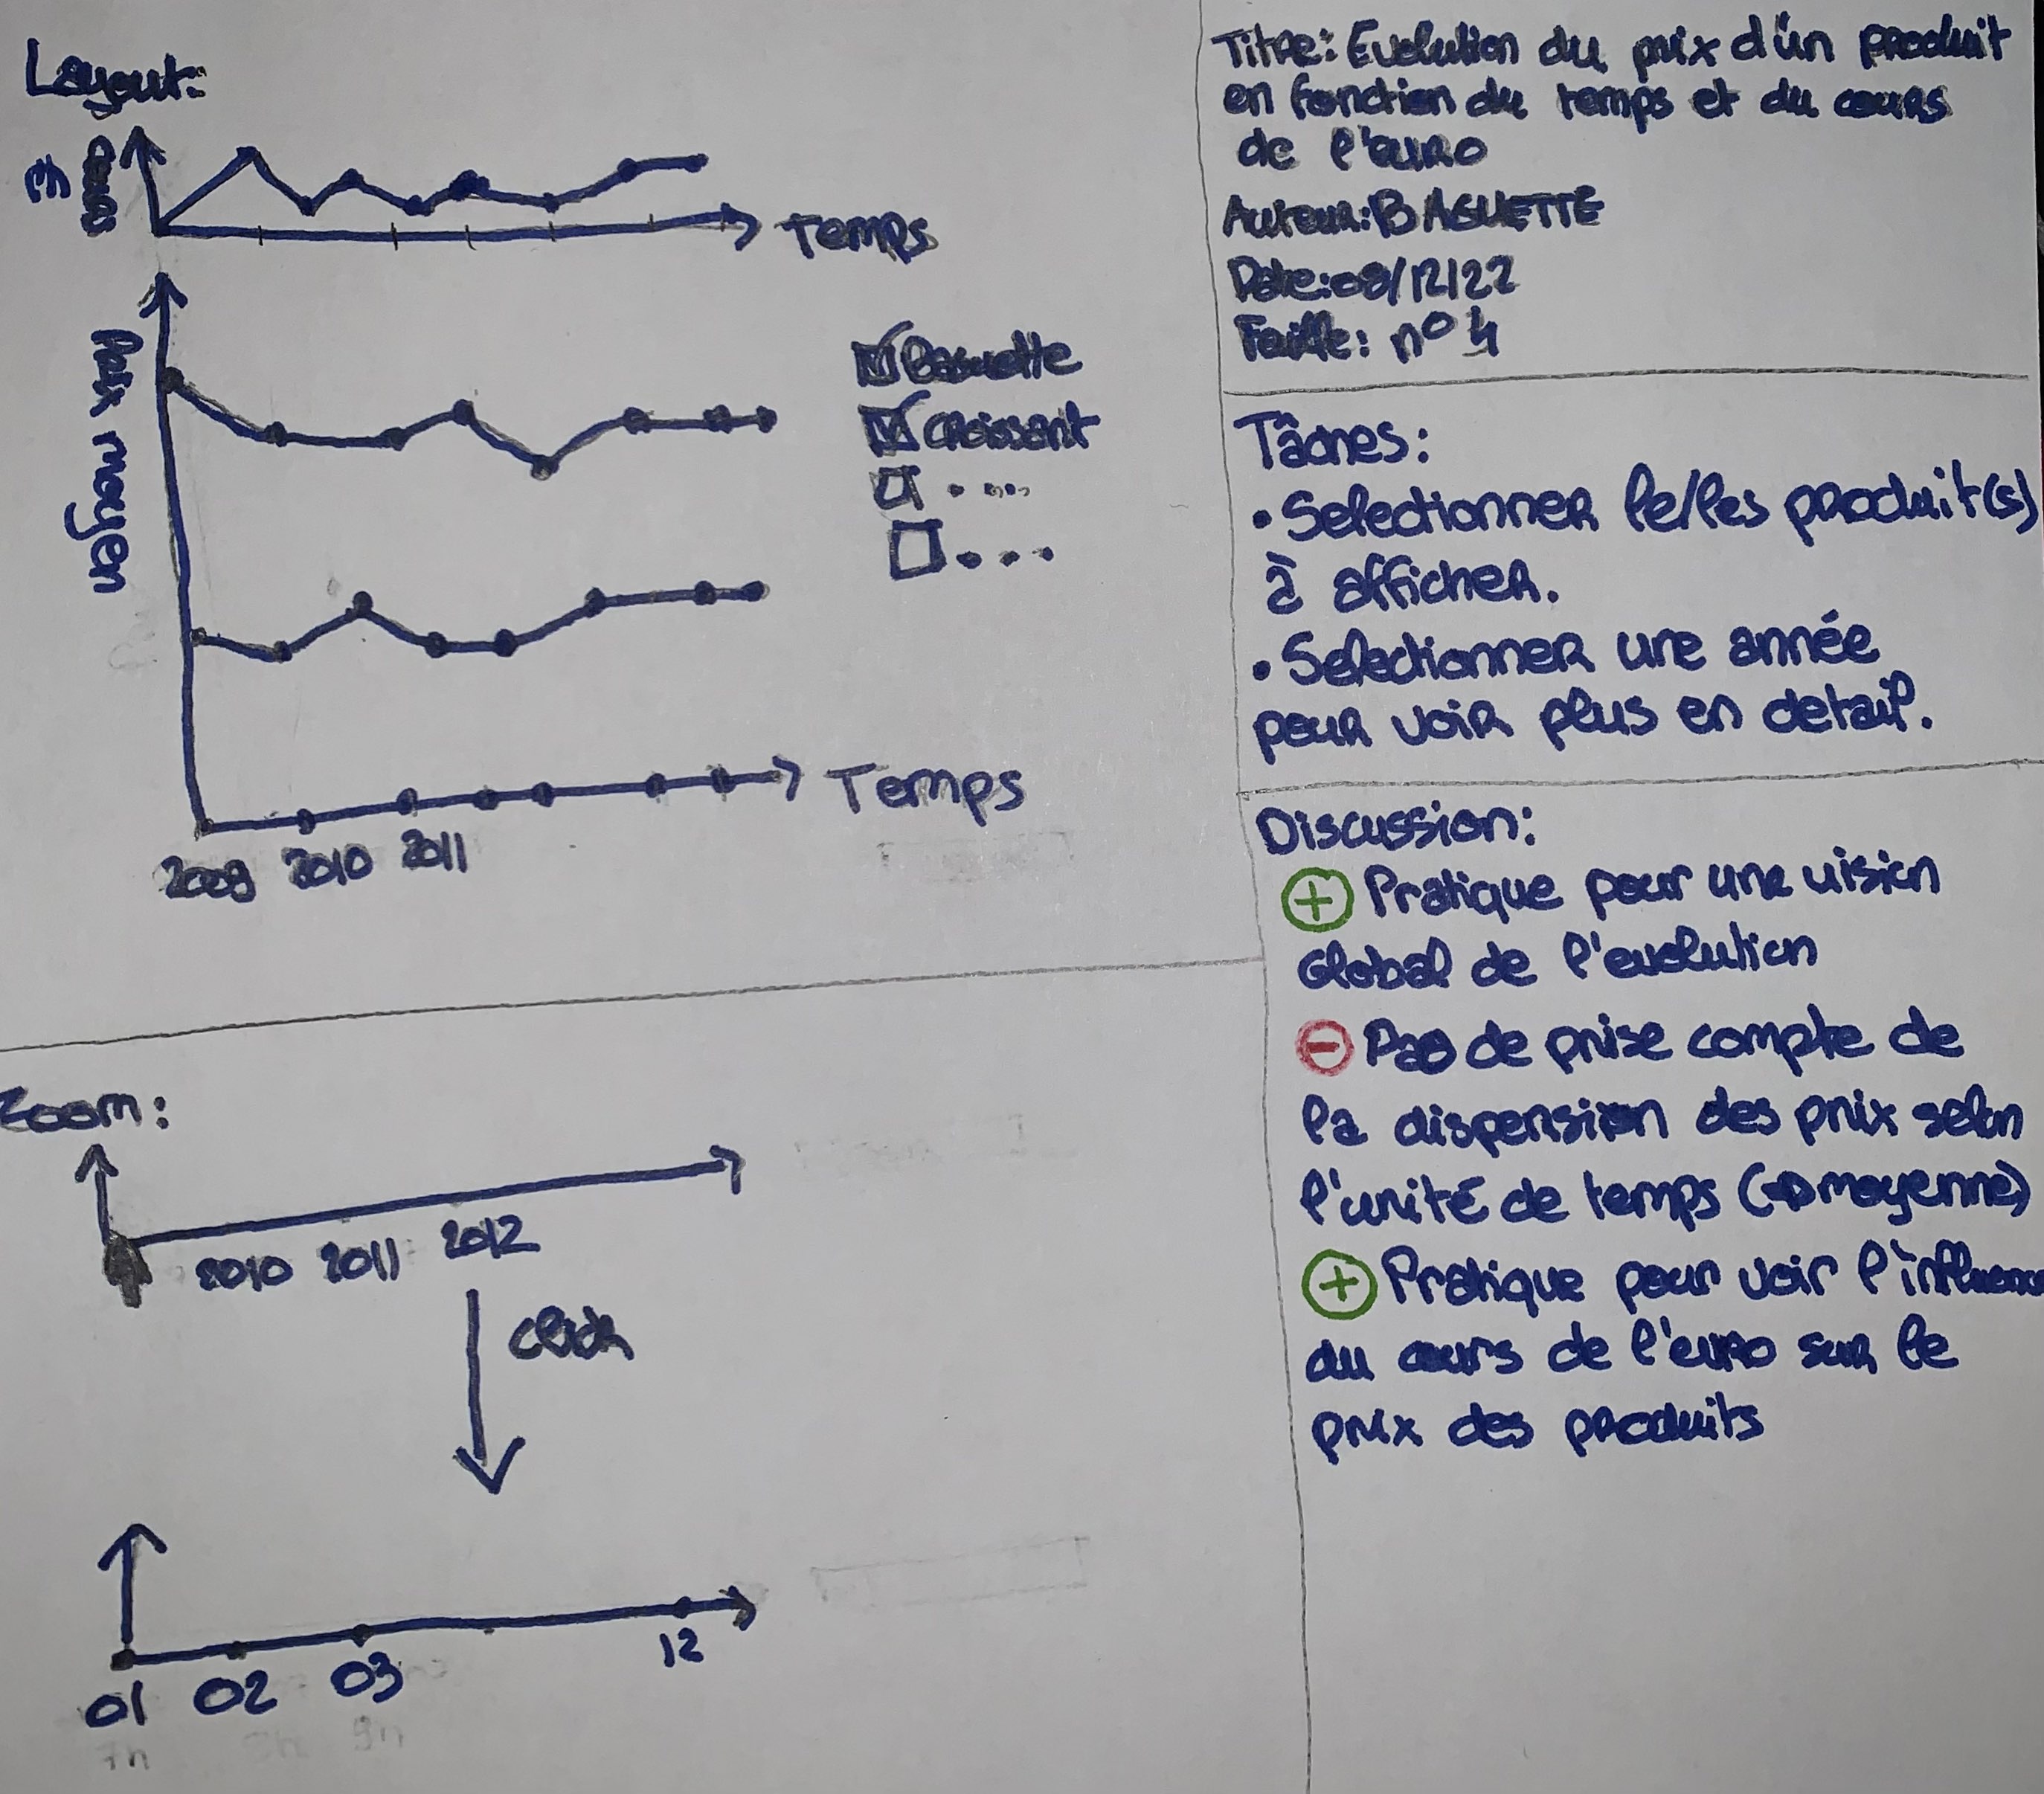 Layout:
Cours
Temps
Prix moyen
Baguette
Croissant
....
...
Temps
2009 2010 2011
Zoom:
2010 2011 2012
click
01 02 03 12
7h 9h
Titre: Evolution du prix d'un produit
en fonction du temps et du cours
de l'euro
Auteur: BAGUETTE
Date: 08/12/22
Feuille: n° 4
Tâches:
• Selectionner le/les produit(s)
à afficher.
• Selectionner une année
pour voir plus en detail.
Discussion:
+ Pratique pour une vision
Global de l'evolution
- Pas de prise compte de
la dispersion des prix selon
l'unité de temps (→ moyenne)
+ Pratique pour voir l'influence
du cours de l'euro sur le
prix des produits